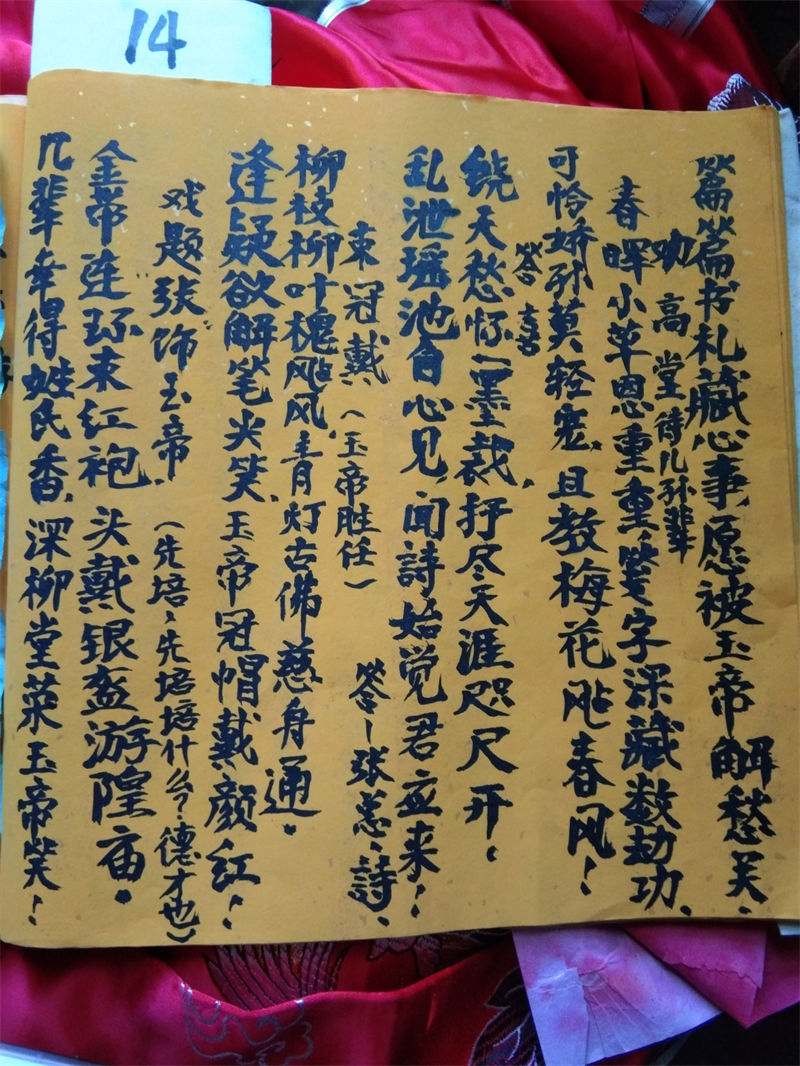 14
篇篇书札藏心事，愿被玉帝解愁关、
劝高堂待儿孙辈
春晖小草恩重重，笔字深藏数劫功、
可怜娇孙莫轻宠，且教梅花飐春风！
答 吉吉
绕天愁怀一墨裁，抒尽天涯咫尺开。
乱泄瑶池自心见，闻詩始觉君应来！
束冠戴（玉帝胜任） 答－张总、詩、
柳枝柳叶槐飐风，青灯古佛慈舟通。
逢疑欲解笔尖笑，玉帝冠帽戴颜红！
戏题张饰玉帝、（先培、先培培什么？德才也）
金帝莲环束红袍，头戴银盔游隍庙。
几辈幸得姓氏香，深柳堂菜玉帝笑！